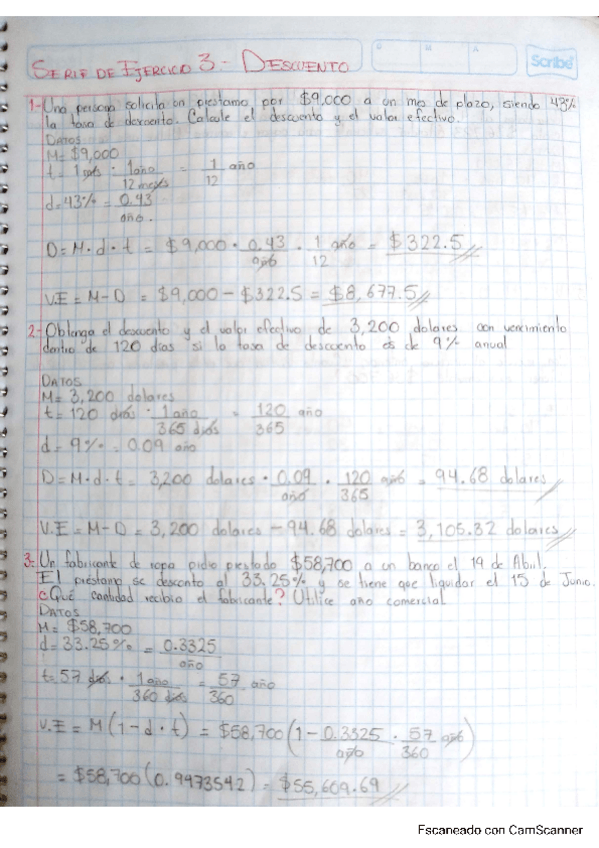 SERIE DE EJERCICIO 3.- DESCUENTO
D M A
Scribe
1.- Una persona solicita un prestamo por $9,000 a un mes de plazo, siendo 43%
la tasa de descuento. Calcule el descuento y el valor efectivo.
DATOS
M= $9,000
t = 1 mes · 1 año / 12 meses = 1/12 año
d=43% = 0.43 / año.
D= M·d·t = $9,000 · 0.43 / año · 1 año / 12 = $322.5
V.E = M-D = $9,000 - $322.5 = $8,677.5
2.- Obtenga el descuento y el valor efectivo de 3,200 dolares con vencimiento
dentro de 120 días si la tasa de descuento es de 9% anual
DATOS
M= 3,200 dolares
t= 120 días · 1 año / 365 días = 120 / 365 año
d = 9% = 0.09 año
D= M·d·t = 3,200 dolares · 0.09 / año · 120 año / 365 = 94.68 dolares
V.E = M-D = 3,200 dolares - 94.68 dolares = 3,105.32 dolares
3.- Un fabricante de ropa pidio prestado $58,700 a un banco el 19 de Abril.
El préstamo se desconto al 33.25% y se tiene que liquidar el 15 de Junio.
¿Qué cantidad recibio el fabricante? Utilice año comercial
DATOS
M= $58,700
d= 33.25% = 0.3325 / año
t= 57 días · 1 año / 360 días = 57 / 360 año
V.E = M(1-d·t) = $58,700(1 - 0.3325 / año · 57 año / 360)
= $58,700(0.9473542) = $55,609.69
Escaneado con CamScanner